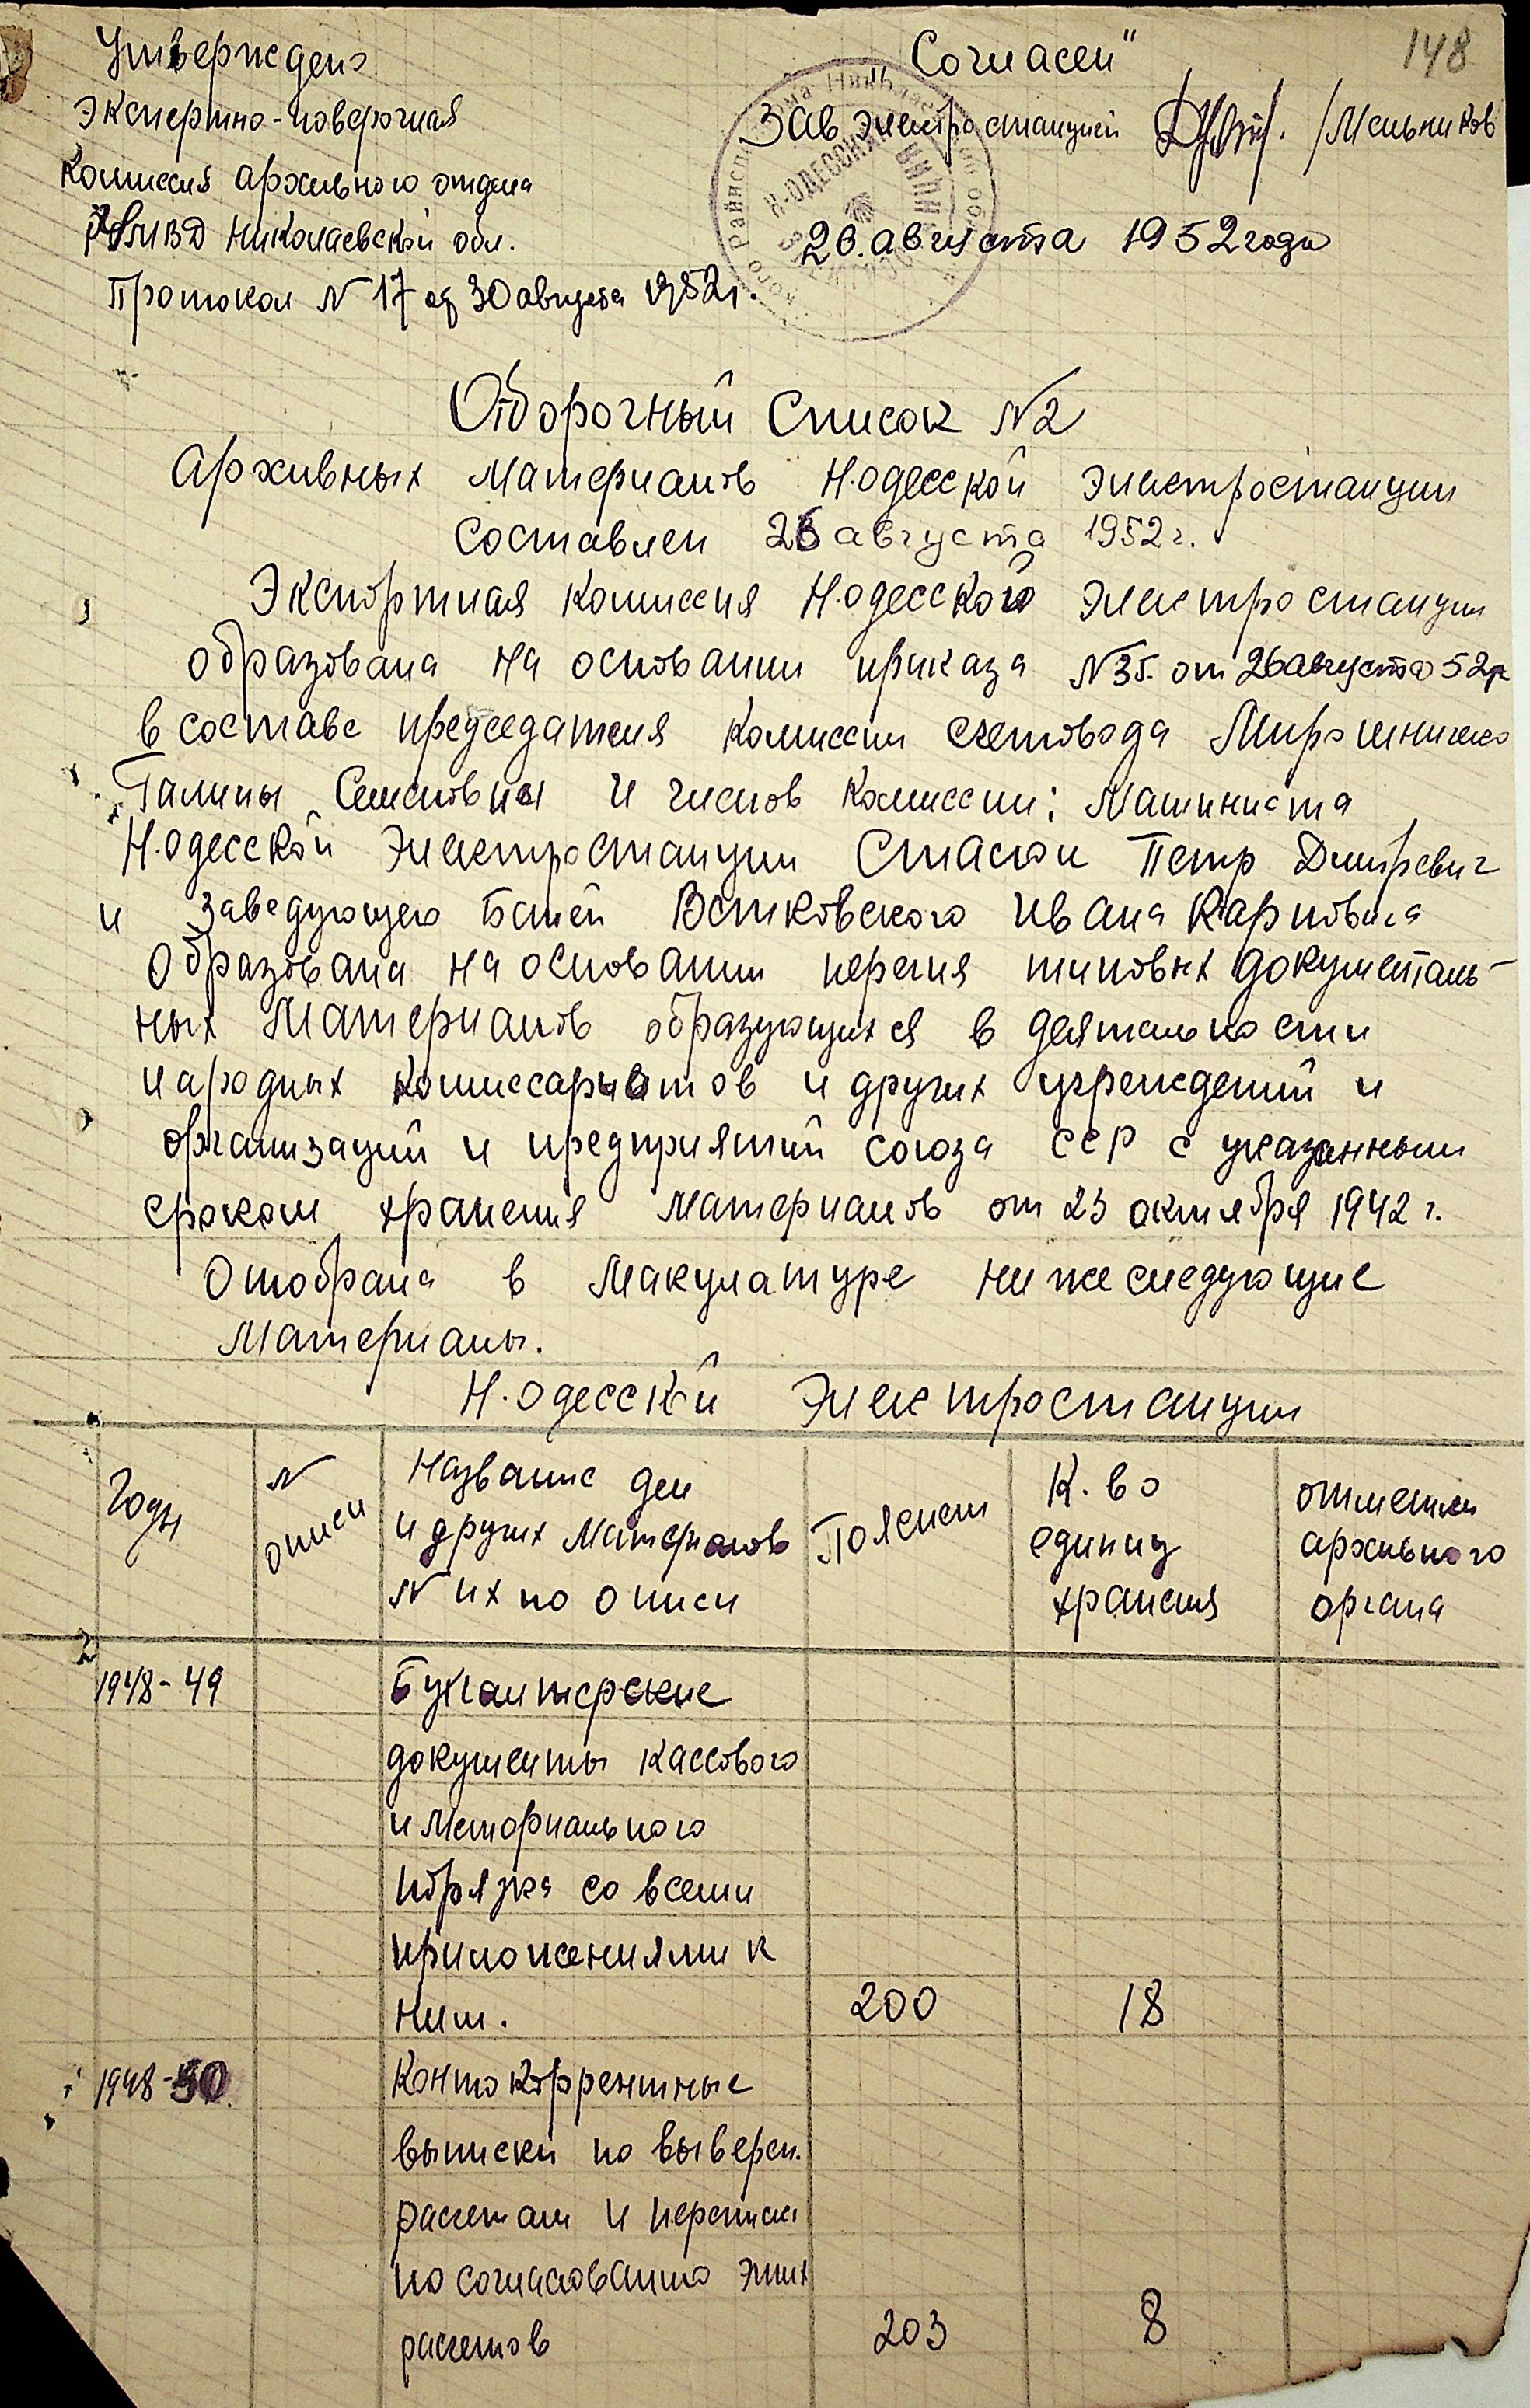 148
Утверждено
Экспертно-поверочная
Комиссия архивного отдела
УМВД Николаевской обл.
Протокол N 17 от 30 августа 1952 г.
„Согласен"
Зав электростанцией /Мельников
26. августа 1952 года
Отборочный Список N2
Архивных Материалов Н.одесской Электростанции
Составлен 26 августа 1952 г.
Экспортная комиссия Н.одесского Электростанции
образована на основании приказа N 35. от 26 августа 52 г
в составе председателя комиссии счетовода Мирошниченко
Галины Семеновны и членов комиссии: Машиниста
Н.одесской Электростанции Стасюк Петр Дмитревич
и Заведующего Баней Витковского Ивана Карповича
Образована на основании переня типовых документаль-
ных Материалов образующихся в деятельности
народных комиссариатов и других учреждений и
организаций и предприятий союза ССР с указанным
сроком хранения Материалов от 23 октября 1942 г.
Отобрана в Макулатуре нижеследующие
Материалы.
Н.одесской Электростанции
Годы
N описи
Название дел
и других Материалов
N их по описи
Пояснен
К.во
единиц
хранения
отметки
архивного
органа
1948-49
Бухгалтерские
документы кассового
и Мемориального
порядка со всеми
приложениями к
ним. 200 18
1948-50.
Контокоррентные
выписки по выверен.
рассчетам и переписка
по согласованию этих
рассчетов 203 8